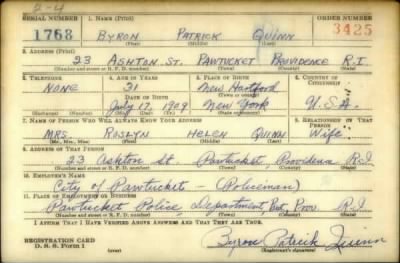 2-4
SERIAL NUMBER 1. NAME (Print) ORDER NUMBER
1768 BYRON PATRICK QUINN 3425
(First) (Middle) (Last)
2. ADDRESS (Print)
23 ASHTON ST. PAWTUCKET PROVIDENCE R.I.
(Number and street or R. F. D. number) (Town) (County) (State)
3. TELEPHONE 4. AGE IN YEARS 5. PLACE OF BIRTH 6. COUNTRY OF CITIZENSHIP
NONE 31 New Hartford
DATE OF BIRTH (Town or county)
July 17, 1909 New York U.S.A.
(Mo.) (Day) (Yr.) (State or country)
7. NAME OF PERSON WHO WILL ALWAYS KNOW YOUR ADDRESS 8. RELATIONSHIP OF THAT PERSON
MRS. ROSLYN HELEN QUINN Wife
(Mr., Mrs., Miss) (First) (Middle) (Last)
9. ADDRESS OF THAT PERSON
23 Ashton St Pawtucket, Providence R.I.
(Number and street or R. F. D. number) (Town) (County) (State)
10. EMPLOYER'S NAME
City of Pawtucket - (Policeman)
11. PLACE OF EMPLOYMENT OR BUSINESS
Pawtucket Police Department, Prov. R.I.
(Number and street or R. F. D. number) (Town) (County) (State)
I AFFIRM THAT I HAVE VERIFIED ABOVE ANSWERS AND THAT THEY ARE TRUE.
REGISTRATION CARD
D. S. S. Form 1 (over) Byron Patrick Quinn
(Registrant's signature)